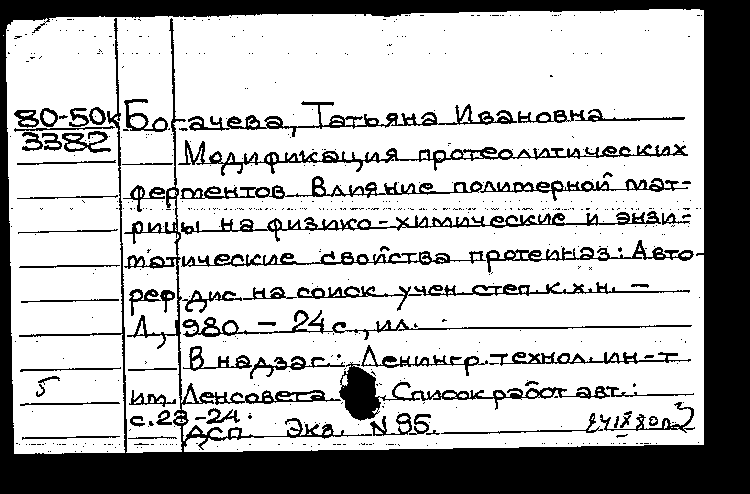 80-50к Богачева, Татьяна Ивановна
3382
Модификация протеолитических
ферментов. Влияние полимерной мат-
рицы на физико-химические и энзи-
матические свойства протеиназ: Авто-
реф. дис. на соиск. учен. степ. к.х.н. –
Л., 1980. – 24 с., ил.
В надзаг.: Ленингр. технол. ин-т
5 им. Ленсовета. Список работ авт.:
с. 23-24.
ДСП. Экз. N 95.